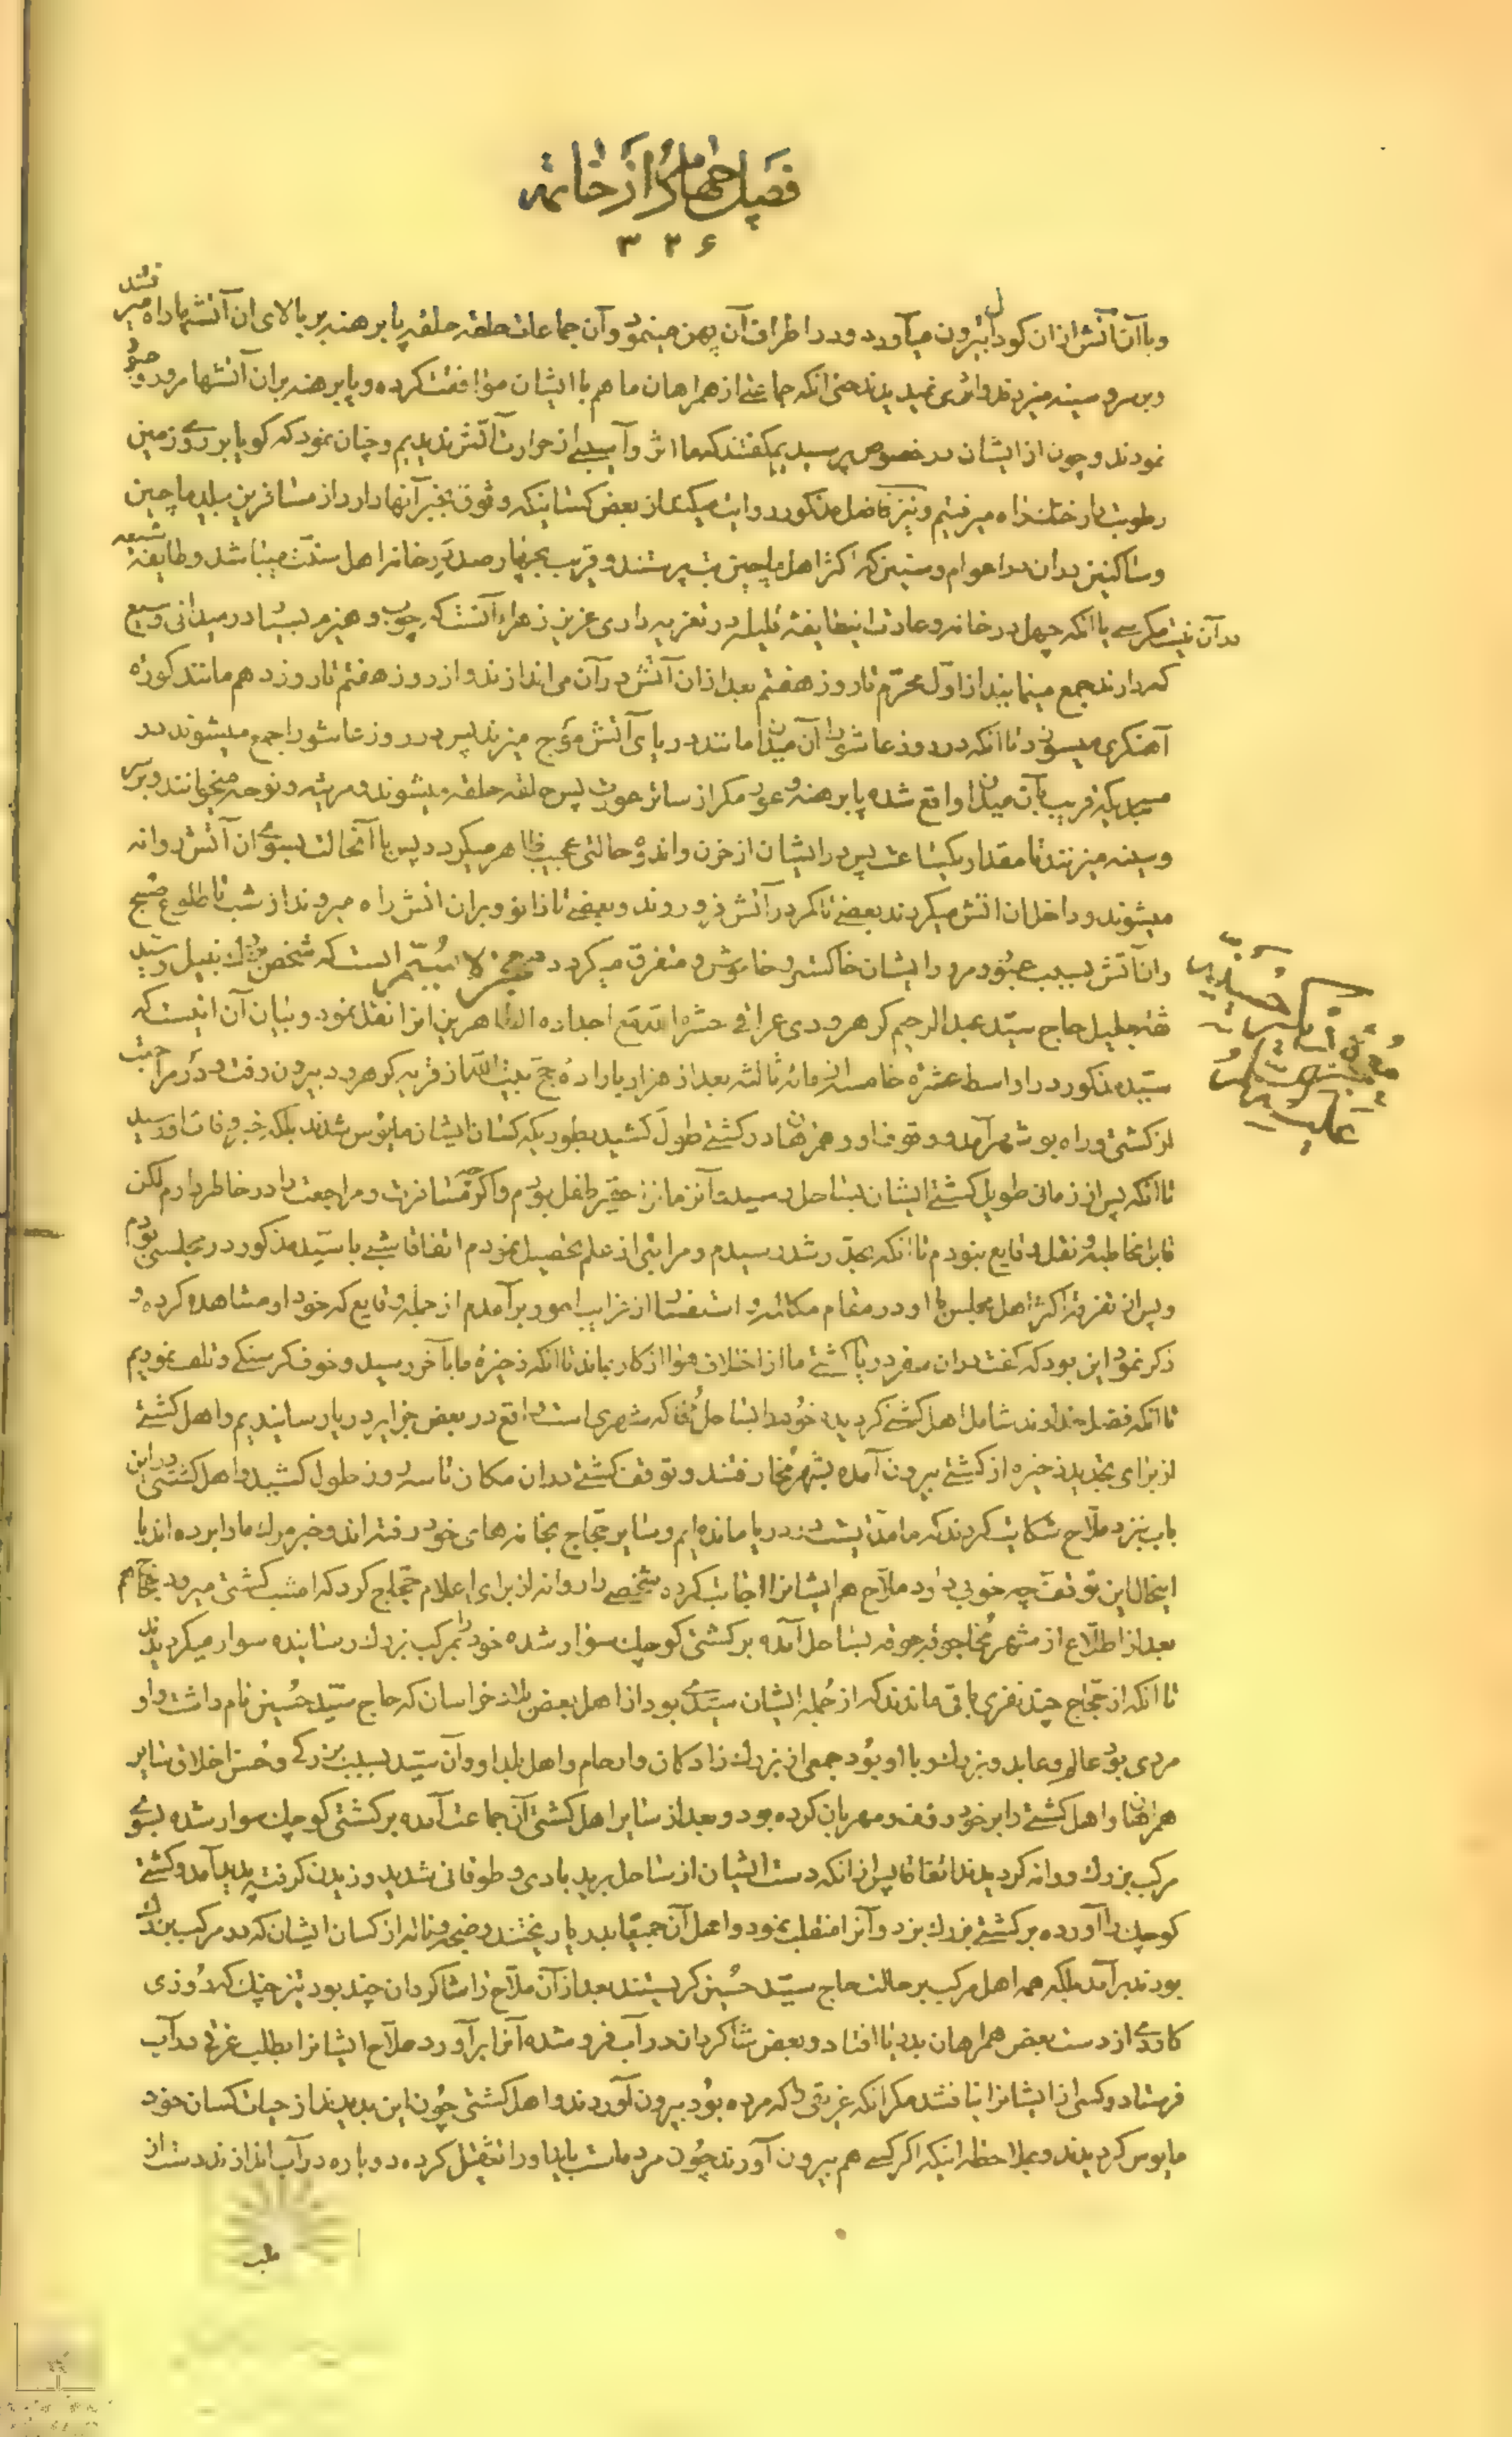 فصل چهارم از خاتمه
۳۲۶
و با آن آتش از آن کودال بیرون میآورد و در اطراف آن پهن مینمود و آن جماعات حلقه حلقه پا برهنه بر بالای ان آتشها راه میرفتند
و بر سر و سینه میزدند و اثری نمیدیدند حتی انکه جماعتی از همراهان ما هم با ایشان موافقت کرده و پا برهنه بران آتشها مرور و عبور
نمودند و چون از ایشان در خصوص پرسیدیم گفتند که ما اثر و آسیبی از حرارت آتش ندیدیم و چنان نمود که کویا بر روی زمین
رطوبت دار خنک راه میرفتیم و نیز فاضل مذکور روایت میکند از بعض کسانیکه وثوق بخبر آنها دارد از مسافرین ببلد ماچین
و ساکنین بدان مدا عوام و سنین که اکثر اهل ماچین بت پرستند و قریب بچهار صد در خانه اهل سنت میباشد و طایفه شیعه
در آن نیست مکر سی یا انکه چهل در خانه و عادت اینطایفه قلیله در تعزیه داری عزیز زهرا آنستکه چوب و هیزم بسیار در میدانی وسیع
که دارند جمع مینمایند از اول محرم تا روز هفتم بعد از ان آتش در آن می اندازند و از روز هفتم تا روز دهم مانند کوره
آهنکری میسوزد تا انکه در روز عاشورا آن میدان مانند دریای آتش موج میزند پس در روز عاشورا جمع میشوند در
مسجدیکه قریب بآن میدان واقع شده پا برهنه و عور مکر از ساتر عورت پس حلقه حلقه میشوند و مرثیه و نوحه میخوانند و بر سر
و سینه میزنند تا مقدار یکساعت پس در ایشان از حزن و اندوه حالتی عجیب ظاهر میکردد پس با آنحالت بسوی ان آتش روانه
میشوند و داخل ان اتش میکردند بعضی تا کمر در آتش فرو روند و بعضی تا زانو و بران اتش راه میروند از شب تا طلوع صبح
و ان آتش بسبب عبور و مرور ایشان خاکستر و خاموش و متفرق میکردد است که شخص نبیل و سید
ثقه جلیل حاج سید عبد الرحیم کرهرودی عراقی حشره الله مع اجداده الطاهرین انرا نقل نمود و بیان آن اینست که
سید مذکور در اواسط عشره خامسه از مائه ثالثه بعد از هزار باراده حج بیت الله از قریه کرهرود بیرون رفت و در مراجعت
از کشتی و راه بوشهر آمد و توقف او و همرهان در کشتی طول کشید بطوریکه کسان ایشان مایوس شدند بلکه خبر وفات او رسید
تا انکه پس از زمانی طویل کشتی ایشان بساحل رسید آنزمان حقیر طفل بودم و اکرچه مسافرت و مراجعت را در خاطر دارم لکن
قابل مخاطبه و نقل وقایع نبودم تا انکه بحد رشد رسیدم و مراتبی از علم تحصیل نمودم اتفاقا شبی با سید مذکور در مجلسی بودم
و پس از تفرقه اکثر اهل مجلس با او در مقام مکالمه و استفسار از غرایب امور برآمدم از جمله وقایع که خود او مشاهده کرده و
ذکر نمود این بود که کفت در ان سفر دریا کشتی ما از اختلاف هوا از کار بماند تا انکه ذخیره ما بآخر رسید و خوف کرسنکی و تلف نمودیم
تا انکه فضل خداوند شامل اهل کشتی کردیده خود را بساحل مخا که شهری است واقع در بعض جزایر دریا رسانیدیم و اهل کشتی
از برای تجدید ذخیره از کشتی بیرون آمده بشهر مخا رفتند و توقف کشتی در ان مکان تا سه روز طول کشید و اهل کشتی در این
باب نزد ملاح شکایت کردند که ما مدتیست در دریا مانده ایم و سایر حجاج بخانه های خود رفته اند و خبر مرک ما را برده اند با
اینحال این توقف چه خوبی دارد ملاح هم ایشانرا اجابت کرده شخصی را روانه از برای اعلام حجاج کرد که امشب کشتی میرود حجاج هم
بعد از اطلاع از شهر مخا جوقه جوقه بساحل آمده بر کشتی کوچک سوار شده خود را بمرکب بزرک رسانیده سوار میکردیدند
تا انکه از حجاج چند نفری باقی ماندند که از جمله ایشان سیدی بود از اهل بعض بلاد خراسان که حاج سید حسین نام داشت و او
مردی بود عالم و عابد و بزرک و با او بود جمعی از بزرک زادکان و ارحام و اهل بلد او و آن سید بسبب بزرکی و حسن اخلاق سایر
همراهان و اهل کشتی را بر خود رؤف و مهربان کرده بود و بعد از سایر اهل کشتی آن جماعت آمده بر کشتی کوچک سوار شده بسوی
مرکب بزرک روانه کردیدند اتفاقا پس از انکه دست ایشان از ساحل برید بادی و طوفانی شدید وزیدن کرفت پدید آمد و کشتی
کوچک را آورده بر کشتی بزرک بزد و آنرا منقلب نمود و اهل آن جمیعا بدریا ریختند و ضجه و ناله از کسان ایشان که در مرکب بزرک
بودند برآمد بلکه همه اهل مرکب بر حالت حاج سید حسین کریستند بعد از آن ملاح را شاکردان چند بود تیز چنک که روزی
کاردی از دست بعض همراهان بدریا افتاد و بعض شاکردان در آب فرو شده آنرا برآورد ملاح ایشانرا بطلب غرقی در آب
فرستاد و کسی از ایشانرا نیافتند مکر انکه غریقی را که مرده بود بیرون آوردند و اهل کشتی چون این بدیدند از حیات کسان خود
مایوس کردیدند و بملاحظه اینکه اکر کسی هم بیرون آورند چون مرده است باید او را تثقیل کرده دوباره در آب اندازند دست از
طلب